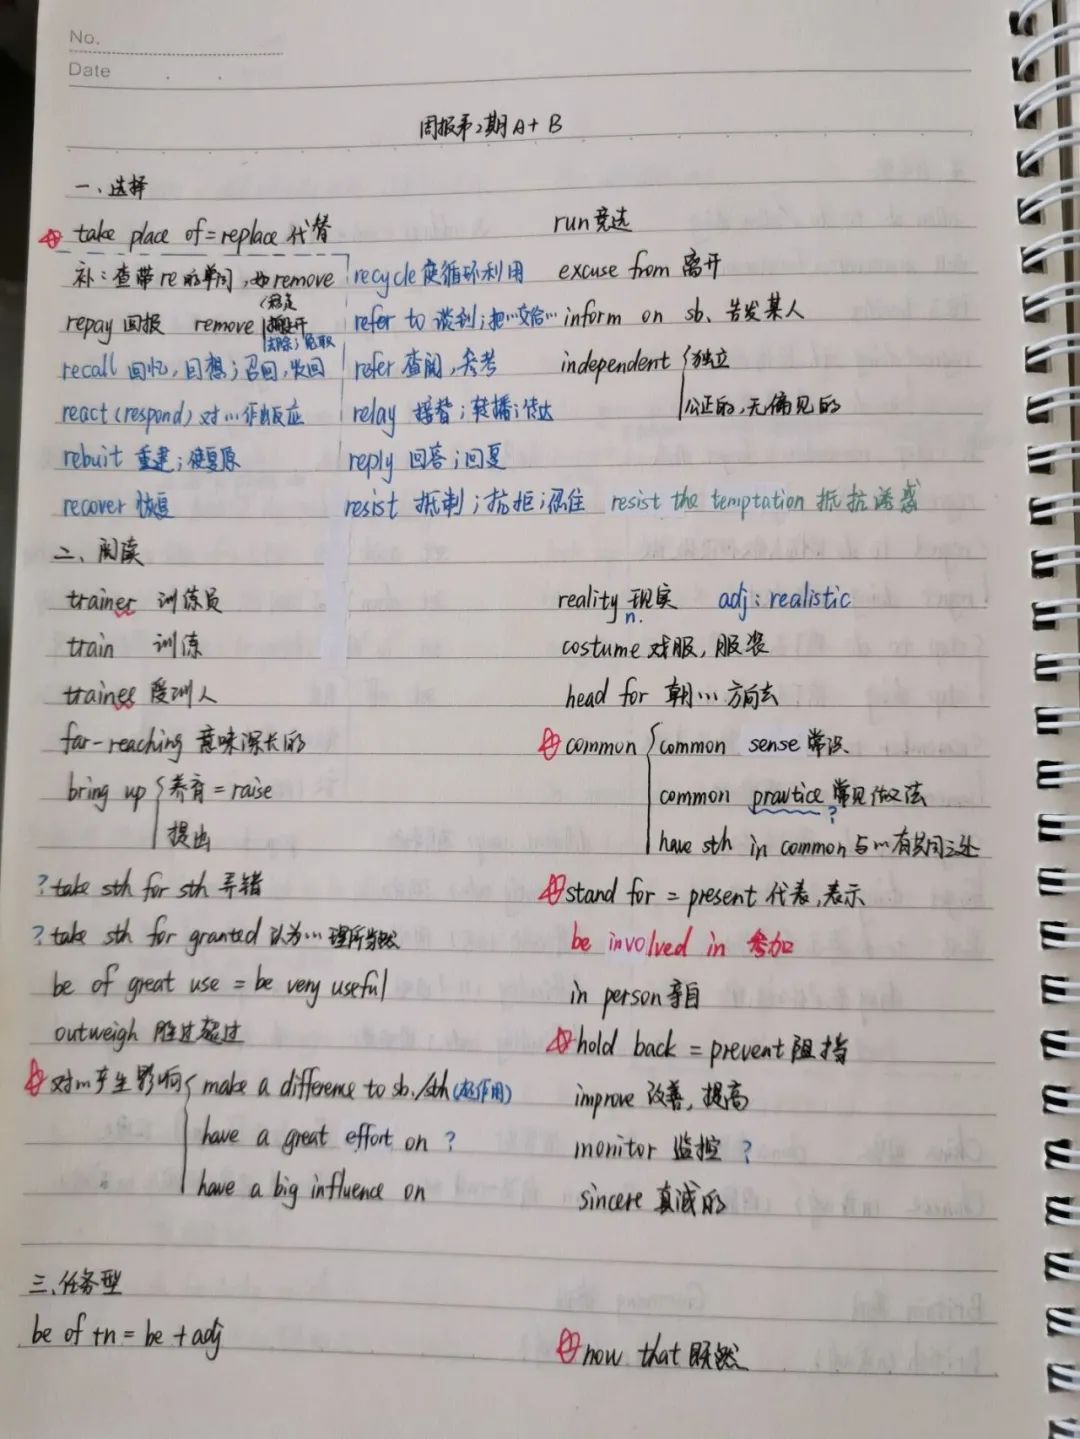 No.
Date
周报第2期A+B
一、选择
take place of=replace 代替
补:查带re的单词,如remove
repay 回报 remove
去除;
recall 回忆,回想;召回,收回
react(respond)对…作出反应
rebuit 重建;使复原
recover 恢复
run 竞选
recycle 使循环利用 excuse from 离开
refer to 谈到;把…交给… inform on sb、告发某人
refer 查阅,参考 independent 独立
公正的,无偏见的
relay 接替;转播;传达
reply 回答;回复
resist 抵制;抗拒;忍住 resist the temptation 抵抗诱惑
二、阅读
trainer 训练员
train 训练
trainee 受训人
far-reaching 意味深长的
bring up 养育=raise
提出
?take sth for sth 弄错
?take sth for granted 认为…理所当然
be of great use = be very useful
outweigh 胜过超过
对…产生影响 make a difference to sb./sth(起作用)
have a great effort on ?
have a big influence on
reality 现实 adj:realistic
n.
costume 戏服,服装
head for 朝…方向去
common common sense 常识
common practice 常见做法
?
have sth in common 与…有共同之处
stand for = present 代表,表示
be involved in 参加
in person 亲自
hold back = prevent 阻挡
improve 改善,提高
monitor 监控 ?
sincere 真诚的
三、任务型
be of +n = be + adj
now that 既然